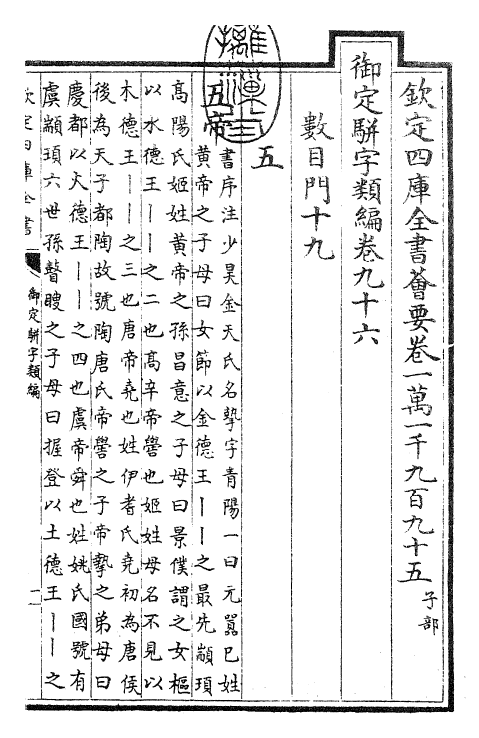 欽定四庫全書薈要卷一萬一千九百九十五子部
御定駢字類編卷九十六
數目門十九
五
五帝書序注少昊金天氏名摯字青陽一曰元囂巳姓
黃帝之子母曰女節以金德王丨丨之最先顓頊
高陽氏姬姓黃帝之孫昌意之子母曰景僕謂之女樞
以水德王丨丨之二也高辛帝嚳也姬姓母名不見以
木德王丨丨之三也唐帝堯也姓伊耆氏堯初為唐侯
後為天子都陶故號陶唐氏帝嚳之子帝摯之弟母曰
慶都以火德王丨丨之四也虞帝舜也姓姚氏國號有
虞顓頊六世孫瞽瞍之子母曰握登以土德王丨丨之
欽定四庫全書
御定駢字類編